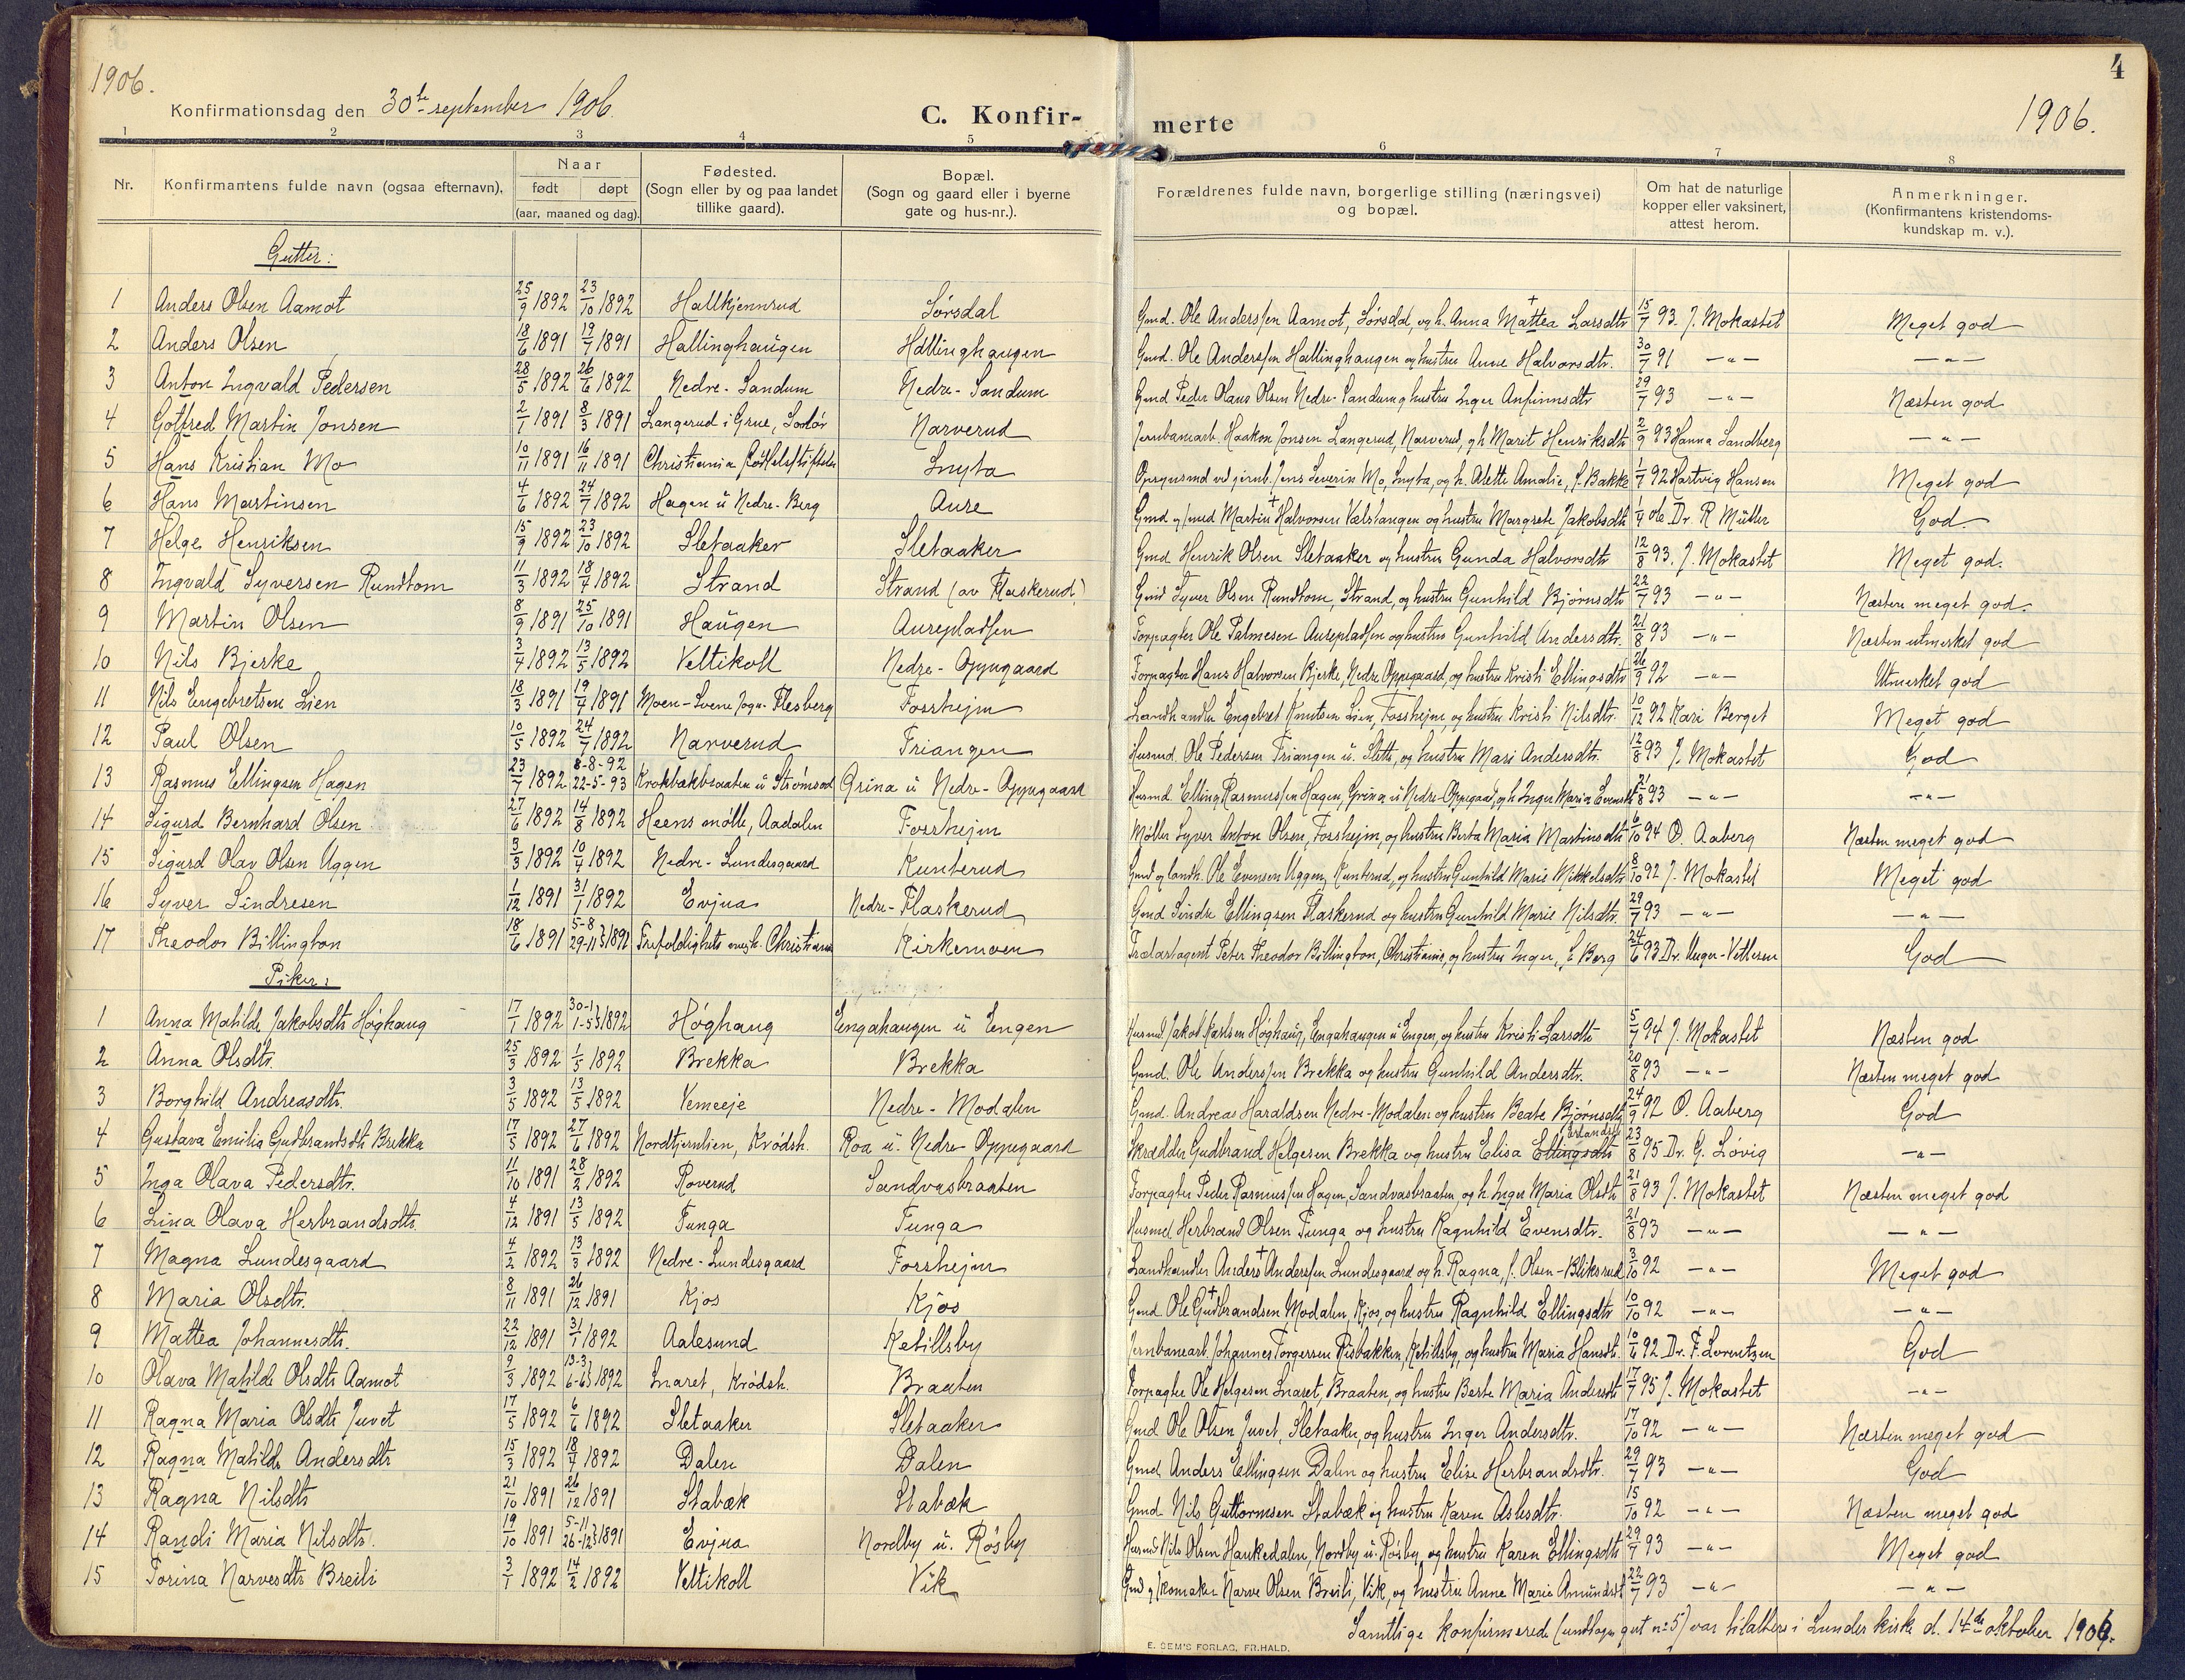 4
1906.
1906.
Konfirmationsdag den 30te september 1906.
C. Konfir-
merte
1 2 3 4 5 6 7 8
Nr. Konfirmantens fulde navn (ogsaa efternavn). Naar født døpt (aar, maaned og dag). Fødested. (Sogn eller by og paa landet tillike gaard). Bopæl. (Sogn og gaard eller i byerne gate og hus-nr.). Forældrenes fulde navn, borgerlige stilling (næringsvei) og bopæl. Om hat de naturlige kopper eller vaksinert, attest herom. Anmerkninger. (Konfirmantens kristendoms-kundskap m. v.).
Gutter:
1 Anders Olsen Aamot 25/9 1892 23/10 1892 Hallkjennrud Sørsdal Gmd. Ole Anderssen Aamot, Sørsdal, og h. Anna Mattea + Larsdtr 15/7 93. J. Mokastet Meget god
2 Anders Olsen 18/6 1891 19/7 1891 Hallinghaugen Hallinghaugen Gmd. Ole Anderssen Hallinghaugen og hustru Anne Halvorsdtr. 30/7 91 -"- -"-
3 Anton Ingvald Pedersen 28/5 1892 26/6 1892 Nedre-Sandum Nedre-Sandum Gmd Peder Olaus Olsen Nedre-Sandum og hustru Inger Anfinnsdtr 29/7 93 -"- Næsten god
4 Gotfred Martin Jonsen 2/1 1891 8/3 1891 Langerud i Grue, Solør Narverud Jernbanearb. Haakon Jonsen Langerud, Narverud, og h. Marit Henriksdtr 2/9 93 Hanna Sandberg -"-
5 Hans Kristian Mo 10/11 1891 16/11 1891 Christiania Snyta Opsynsmd ved jernb. Jens Severin Mo, Snyta, og h. Alette Amalie, f. Bakke 1/7 92 Hartvig Hansen Meget god
6 Hans Martinsen 4/6 1892 24/7 1892 Hagen u Nedre-Berg Aure Gmd og smed Martin + Halvorsen Vælstangen og hustru Margrete Jakobsdtr 1/4 06 Dr. R Müller God
7 Helge Henriksen 15/9 1892 23/10 1892 Sletaaker Sletaaker Gmd Henrik Olsen Sletaaker og hustru Gunda Halvorsdtr 12/8 93. J. Mokastet Meget god.
8 Ingvald Syversen Rundtom 11/3 1892 18/4 1892 Strand Strand (av Flaskerud) Gmd Syver Olsen Rundtom, Strand, og hustru Gunhild Bjørnsdtr 22/7 93 -"- Næsten meget god.
9 Martin Olsen 8/9 1891 25/10 1891 Haugen Aurepladsen Forpagter Ole Palmesen Aurepladsen og hustru Gunhild Andersdtr. 21/8 93 -"- Næsten utmerket god
10 Nils Bjerke 3/4 1892 13/5 1892 Veltikoll Nedre-Oppegaard Forpagter Hans Halvorsen Bjerke, Nedre Oppegaard, og hustru Kristi Ellingsdtr 26/9 92 -"- Utmerket god
11 Nils Engebretsen Lien 18/3 1891 19/4 1891 Moen-Svene sogn-Flesberg Fossheim Landhandler Engebret Knutsen Lien, Fosshejm og hustru Kristi Nilsdtr. 10/12 92 Kari Berget Meget god
12 Paul Olsen 10/5 1892 24/7 1892 Narverud Friangen Husmd. Ole Pedersen Friangen u. Slette, og hustru Mari Andersdtr. 12/8 93 J. Mokastet God
13 Rasmus Ellingsen Hagen 23/7 1892 8-8-92 22-5-93 Krokbækbraaten u Strømsod Grina u Nedre-Oppegaard Husmd. Elling Rasmussen Hagen, Grina u Nedre-Oppegaard, og h. Inger Maria Evensdtr 21/8 93 -"- -"-
14 Sigurd Bernhard Olsen 27/6 1892 14/8 1892 Heens mølle, Aadalen Fosshejm Møller Syver Anton Olsen, Fosshejm, og hustru Berta Maria Martinsdtr 6/10 94 O. Aaberg Næsten meget god
15 Sigurd Olav Olsen Uggen 3/3 1892 10/4 1892 Nedre-Lundesgaard Kunterud Gmd og landh. Ole Evensen Uggen, Kunterud, og hustru Gunhild Marie Mikkelsdtr 8/10 92 J. Mokastet Meget god
16 Syver Sindresen 1/12 1891 31/1 1892 Evjua Nedre-Flaskerud Gmd Sindre Ellingsen Flaskerud og hustru Gunhild Marie Nilsdtr. 29/7 93 -"- -"-
17 Theodor Billington 18/6 1891 5-8 29-11 } 1891 Trefoldighets megh. Christiania Kirkemoen Trælastagent Peter Theodor Billington, Christiania, og hustru Inger, f. Berg 24/6 93 Dr. Unger-Vetlesen God
Piker:
1 Anna Matilde Jakobsdtr Høghaug 17/1 1892 30-1 1-5 } 1892 Høghaug Engahaugen u Engen Husmd Jakob Karlsen Høghaug, Engahaugen u Engen, og hustru Kristi Larsdtr 5/7 94 J. Mokastet Næsten god
2 Anna Olsdtr. 25/3 1892 1/5 1892 Brekka Brekka Gmd. Ole Anderssen Brekka og hustru Gunhild Andersdtr. 20/8 93 -"- Næsten meget god
3 Borghild Andreasdtr. 3/5 1892 13/5 1892 Vemeeje Nedre-Modalen Gmd. Andreas Haraldsen Nedre-Modalen og hustru Beate Bjørnsdtr 24/9 92 O. Aaberg God
4 Gustava Emilie Gudbrandsdtr Brekka 17/5 1892 27/6 1892 Nordtjernlien, Krødsh. Roa u. Nedre Oppegaard Skrædder Gudbrand Helgesen Brekka og hustru Elisa Ellingsdtr Erlandsd 23/8 95 Dr. G. Løvig -"-
5 Inga Olava Pedersdtr. 11/10 1891 28/2 1892 Roverud Sandvasbraaten Forpagter Peder Rasmussen Hagen, Sandvasbraaten, og h. Inger Maria Olsdtr 21/8 93 J. Mokastet Næsten meget god
6 Lina Olava Herbrandsdtr. 4/12 1891 13/5 1892 Tunga Tunga Husmd Herbrand Olsen Tunga og hustru Ragnhild Evensdtr. 21/8 93 -"- -"-
7 Magna Lundesgaard 4/2 1892 13/3 1892 Nedre-Lundesgaard Fosshejm Landhandler Anders + Anderssen Lundesgaard og h. Ragna, f. Olsen-Bliksrud 3/10 92 -"- Meget god
8 Maria Olsdtr. 8/11 1891 26/12 1891 Kjos Kjos Gmd. Ole + Gudbrandsen Modalen, Kjos, og hustru Ragnhild Ellingsdtr 10/10 92 -"- -"-
9 Mattea Johannesdtr. 22/12 1891 31/1 1892 Aalesund Ketillsby Jernbanearb. Johannes Torgersen Risbakken, Ketillsby, og hustru Maria Hansdtr. 10/6 92 Dr. F. Lorentzen God
10 Olava Matilde Olsdtr Aamot 9/3 1892 13-3 6-6 } 1892 Snaret, Krødsh. Braaten Forpagter Ole Helgesen Snaret, Braaten, og hustru Berte Maria Andersdtr 17/7 95 J. Mokastet -"-
11 Ragna Maria Olsdtr Juvet 17/5 1892 6/6 1892 Sletaaker Sletaaker Gmd Ole Olsen Juvet, Sletaaker, og hustru Inger Andersdtr. 17/10 92 -"- Næsten meget god
12 Ragna Matilde Andersdtr 15/3 1892 18/4 1892 Dalen Dalen Gmd. Anders Ellingsen Dalen og hustru Elise Herbrandsdtr. 29/7 93 -"- God
13 Ragna Nilsdtr 21/10 1891 26/12 1891 Stabæk Stabæk Gmd. Nils Guttormsen Stabæk og hustru Karen Aslesdtr. 15/10 92 -"- Næsten meget god
14 Randi Maria Nilsdtr. 19/10 1891 5-11 26-12 } 1891 Evjua Nordby u. Røsby Husmd Nils Olsen Haukedalen, Nordby u. Røsby, og hustru Karen Ellingsdtr 29/7 93 -"- Meget god
15 Torina Narvesdtr Breili 3/1 1892 14/2 1892 Veltikoll Vik Gmd og skomaker Narve Olsen Breili, Vik, og hustru Anne Marie Amundsdt 22/7 93 -"- -"-
Samtlige konfirmerede (undtagen gut no 5) var tilalters i Lunder kirke d. 14de oktober 1906.
E. SEM'S FORLAG, FR.HALD.